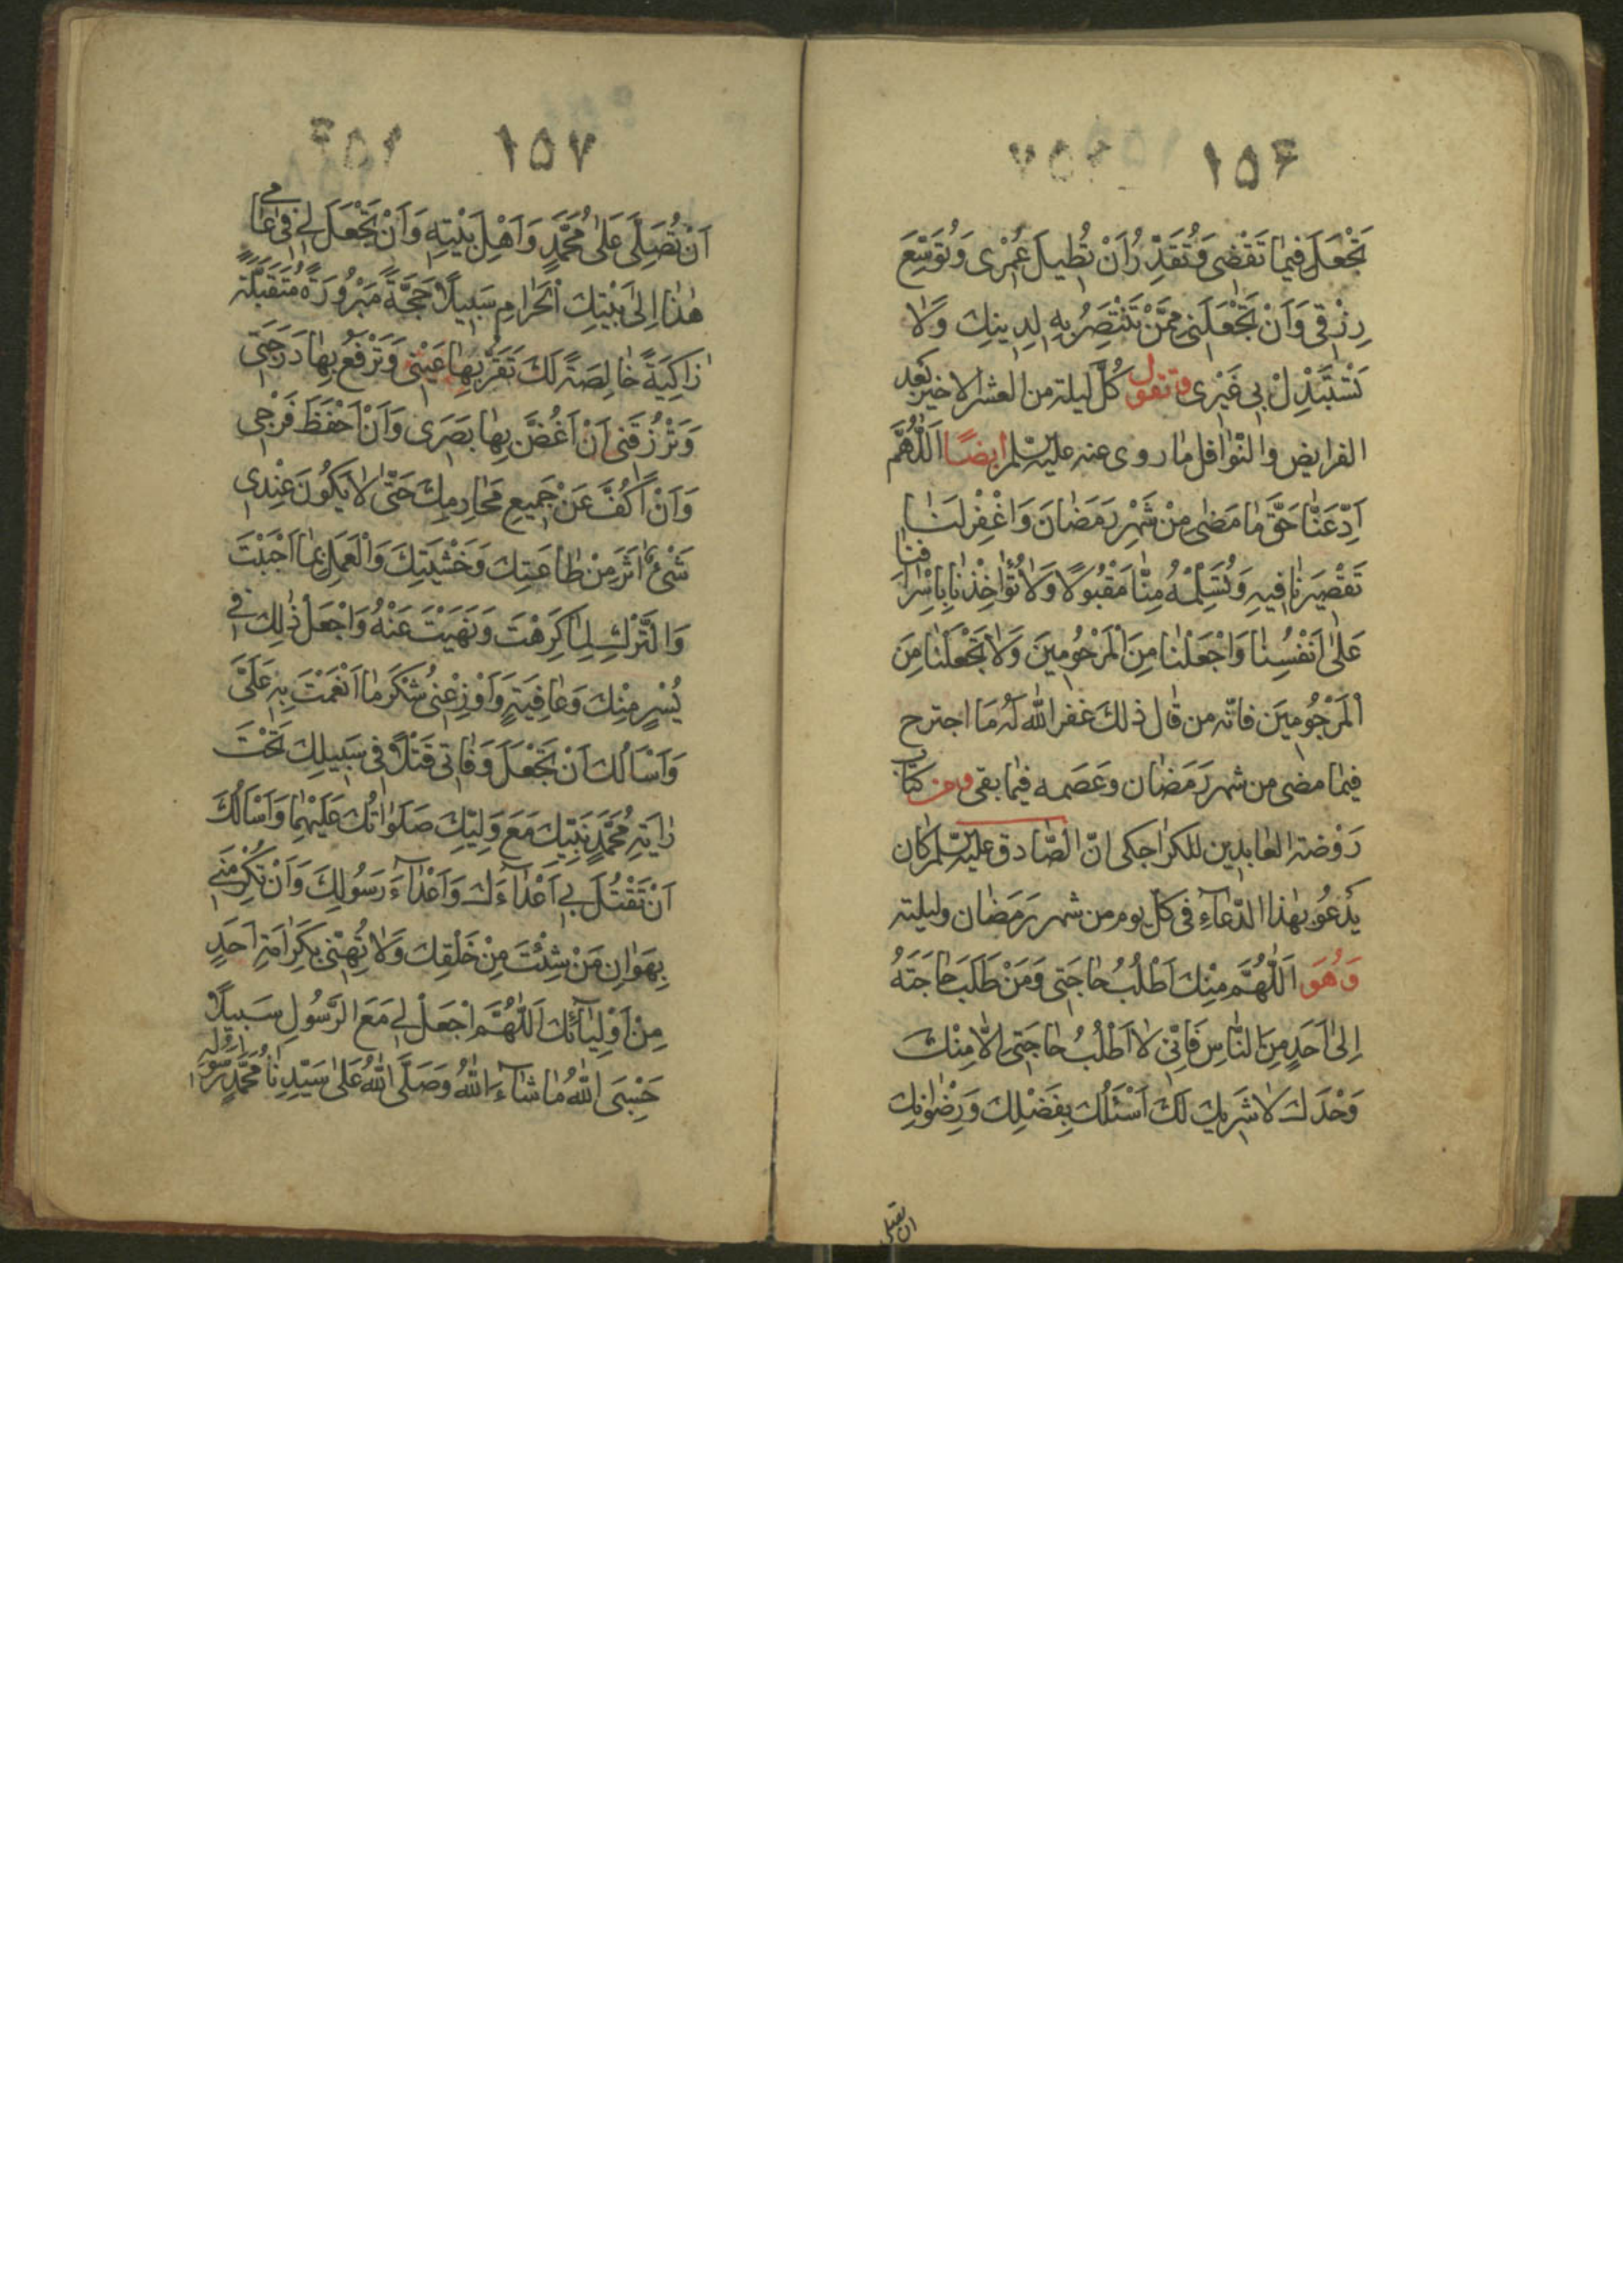 ١٥٦
تَجْعَلَ فِيمَا تَقْضِي وَتُقَدِّرُ اَنْ تُطِيلَ عُمْرِي وَتُوَسِّعَ
رِزْقِي وَاَنْ تَجْعَلَنِي مِمَّنْ تَنْتَصِرُ بِهِ لِدِينِكَ وَلَا
تَسْتَبْدِلْ بِي غَيْرِي وتقول كُلّ ليلة من العشر الاخير بعد
الفرايض والنوافل ما روى عنه عليه السلم ايضًا اَللّٰهُمَّ
اَدِّ عَنَّا حَقَّ مَا مَضٰى مِنْ شَهْرِ رَمَضَانَ وَاغْفِرْ لَنَا
تَقْصِيرَنَا فِيهِ وَتُسَلِّمْهُ مِنَّا مَقْبُولًا وَلَا تُؤَاخِذْنَا بِاِسْرَافِنَا
عَلٰى اَنْفُسِنَا وَاجْعَلْنَا مِنَ الْمَرْحُومِينَ وَلَا تَجْعَلْنَا مِنَ
الْمَرْجُومِينَ فانّه من قال ذلك غفر الله لَهُ مَا اجترح
فيما مضى من شهر رَمَضان وعَصَمه فيما بقى ومن كتاب
رَوْضة العابدين للكراجكى انّ الصّادق عليه السّلم كان
يَدْعُو بهٰذا الدّعآءِ فى كلّ يوم من شهر رَمَضان وليلته
وَهُوَ اَللّٰهُمَّ مِنْكَ اَطْلُبُ حَاجَتِي وَمَنْ طَلَبَ حَاجَتَهُ
اِلٰى اَحَدٍ مِنَ النَّاسِ فَاِنِّي لَا اَطْلُبُ حَاجَتِي اِلَّا مِنْكَ
وَحْدَكَ لَا شَرِيكَ لَكَ اَسْئَلُكَ بِفَضْلِكَ وَرِضْوَانِكَ
١٥٧
اَنْ تُصَلِّيَ عَلٰى مُحَمَّدٍ وَاَهْلِ بَيْتِهِ وَاَنْ تَجْعَلَ لِي فِي عَامِي
هٰذَا اِلٰى بَيْتِكَ الْحَرَامِ سَبِيلًا حَجَّةً مَبْرُورَةً مُتَقَبَّلَةً
زَاكِيَةً خَالِصَةً لَكَ تَقَرُّ بِهَا عَيْنِي وَتَرْفَعُ بِهَا دَرَجَتِي
وَتَرْزُقَنِي اَنْ اَغُضَّ بِهَا بَصَرِي وَاَنْ اَحْفَظَ فَرْجِي
وَاَنْ اَكُفَّ عَنْ جَمِيعِ مَحَارِمِكَ حَتّٰى لَا يَكُونَ عِنْدِي
شَيْءٌ اٰثَرَ مِنْ طَاعَتِكَ وَخَشْيَتِكَ وَالْعَمَلِ بِمَا اَحْبَبْتَ
وَالتَّرْكِ لِمَا كَرِهْتَ وَنَهَيْتَ عَنْهُ وَاجْعَلْ ذٰلِكَ فِي
يُسْرٍ مِنْكَ وَعَافِيَةٍ وَاَوْزِعْنِي شُكْرَ مَا اَنْعَمْتَ بِهِ عَلَيَّ
وَاَسْاَلُكَ اَنْ تَجْعَلَ وَفَاتِي قَتْلًا فِي سَبِيلِكَ تَحْتَ
رَايَةِ مُحَمَّدٍ نَبِيِّكَ مَعَ وَلِيِّكَ صَلَوَاتُكَ عَلَيْهِمَا وَاَسْاَلُكَ
اَنْ تَقْتُلَ بِي اَعْدَآءَكَ وَاَعْدَآءَ رَسُولِكَ وَاَنْ تُكْرِمَنِي
بِهَوَانِ مَنْ شِئْتَ مِنْ خَلْقِكَ وَلَا تُهِنِّي بِكَرَامَةِ اَحَدٍ
مِنْ اَوْلِيَآئِكَ اَللّٰهُمَّ اجْعَلْ لِي مَعَ الرَّسُولِ سَبِيلًا
حَسْبِيَ اللّٰهُ مَا شَآءَ اللّٰهُ وَصَلَّى اللّٰهُ عَلٰى سَيِّدِنَا مُحَمَّدٍ رَسُولِهِ